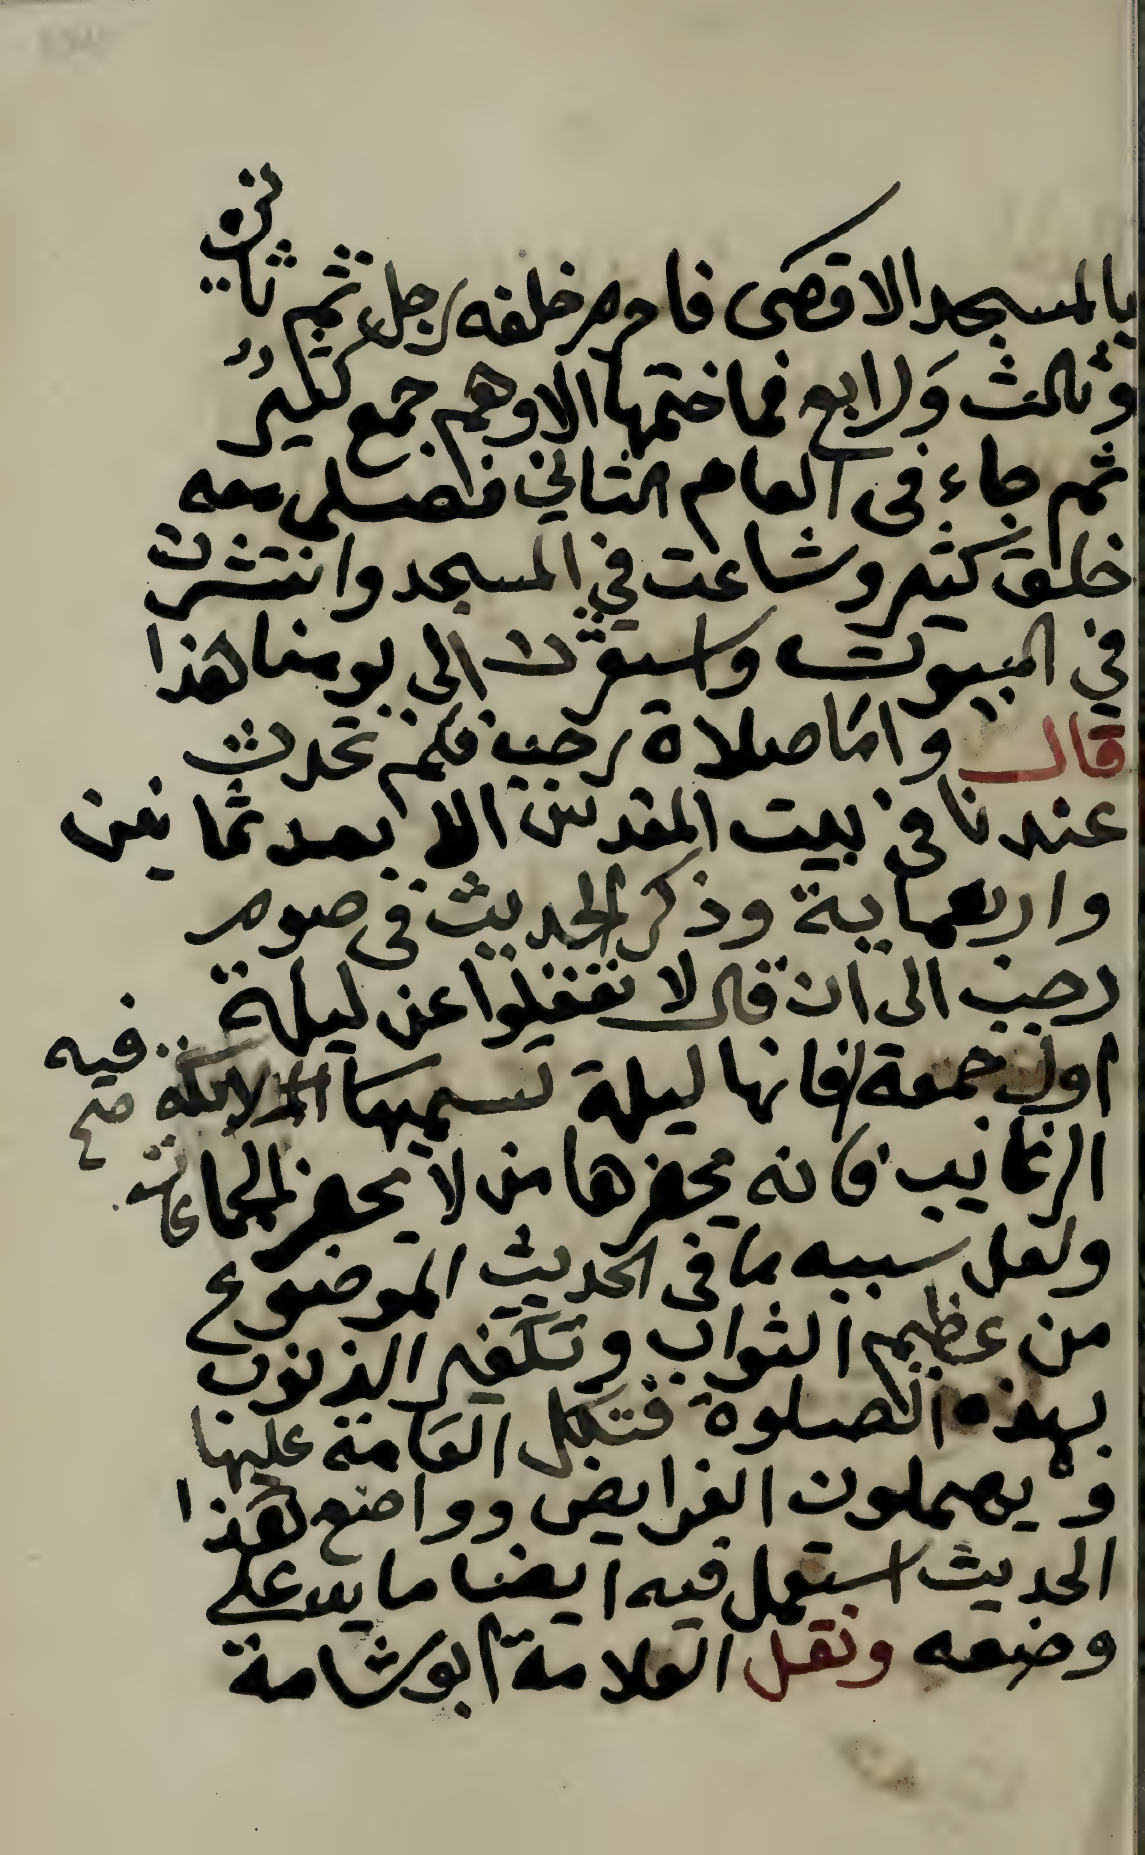 بالمسجد الاقصى فاحرم خلفه رجل ثم ثان
وثالث ورابع فما ختمها الا وهم جمع كثير
ثم جاء في العام الثاني فصلى معه
خلق كثير وشاعت في المسجد وانتشرت
في البيوت واستقرت الى يومنا هذا
قال واما صلاة رجب فلم تحدث
عندنا في بيت المقدس الا بعد ثمانين
واربعماية وذكر الحديث في صوم
رجب الى ان قال لا تغفلوا عن ليلة
اول جمعة فانها ليلة تسميها الملايكة
فيه صح
الرغايب فانه يحضرها من لا يحضر الجماعات
ولعل سببه ما في الحديث الموضوع
من عظيم الثواب وتكفير الذنوب
بهذه الصلوة فتتكل العامة عليها
ويهملون الفرايض وواضع هذا
الحديث استعمل فيه ايضا ما يدل على
وضعه ونقل العلامة ابو شامة